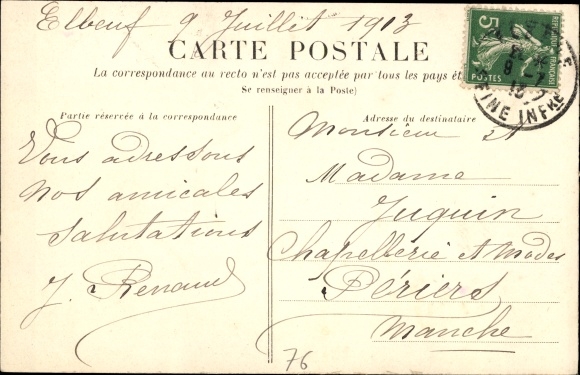 Elbeuf 9 Juillet 1913
CARTE POSTALE
La correspondance au recto n'est pas acceptée par tous les pays ét
Se renseigner à la Poste)
Partie réservée à la correspondance
Adresse du destinataire
Vous adressons
nos amicales
salutations
J. Renaud
Monsieur et
Madame
Juquin
Chapellerie et Modes
Périers
Manche
76
5
POSTES
INFRE